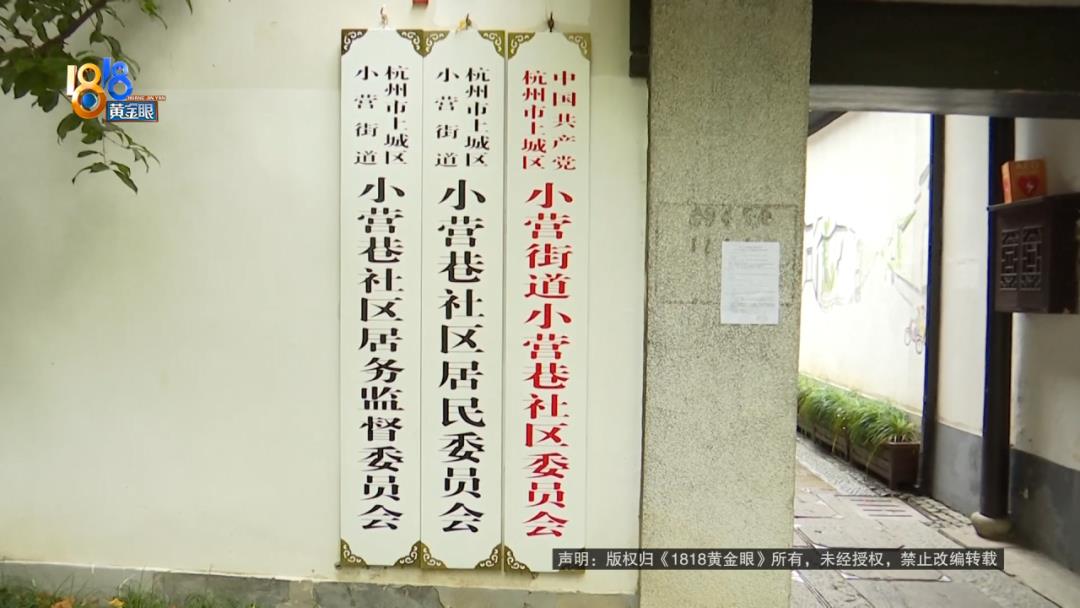 1818
黄金眼
中国共产党
杭州市上城区
小营街道小营巷社区委员会
杭州市上城区
小营街道
小营巷社区居民委员会
杭州市上城区
小营街道
小营巷社区居务监督委员会
声明：版权归《1818黄金眼》所有，未经授权，禁止改编转载